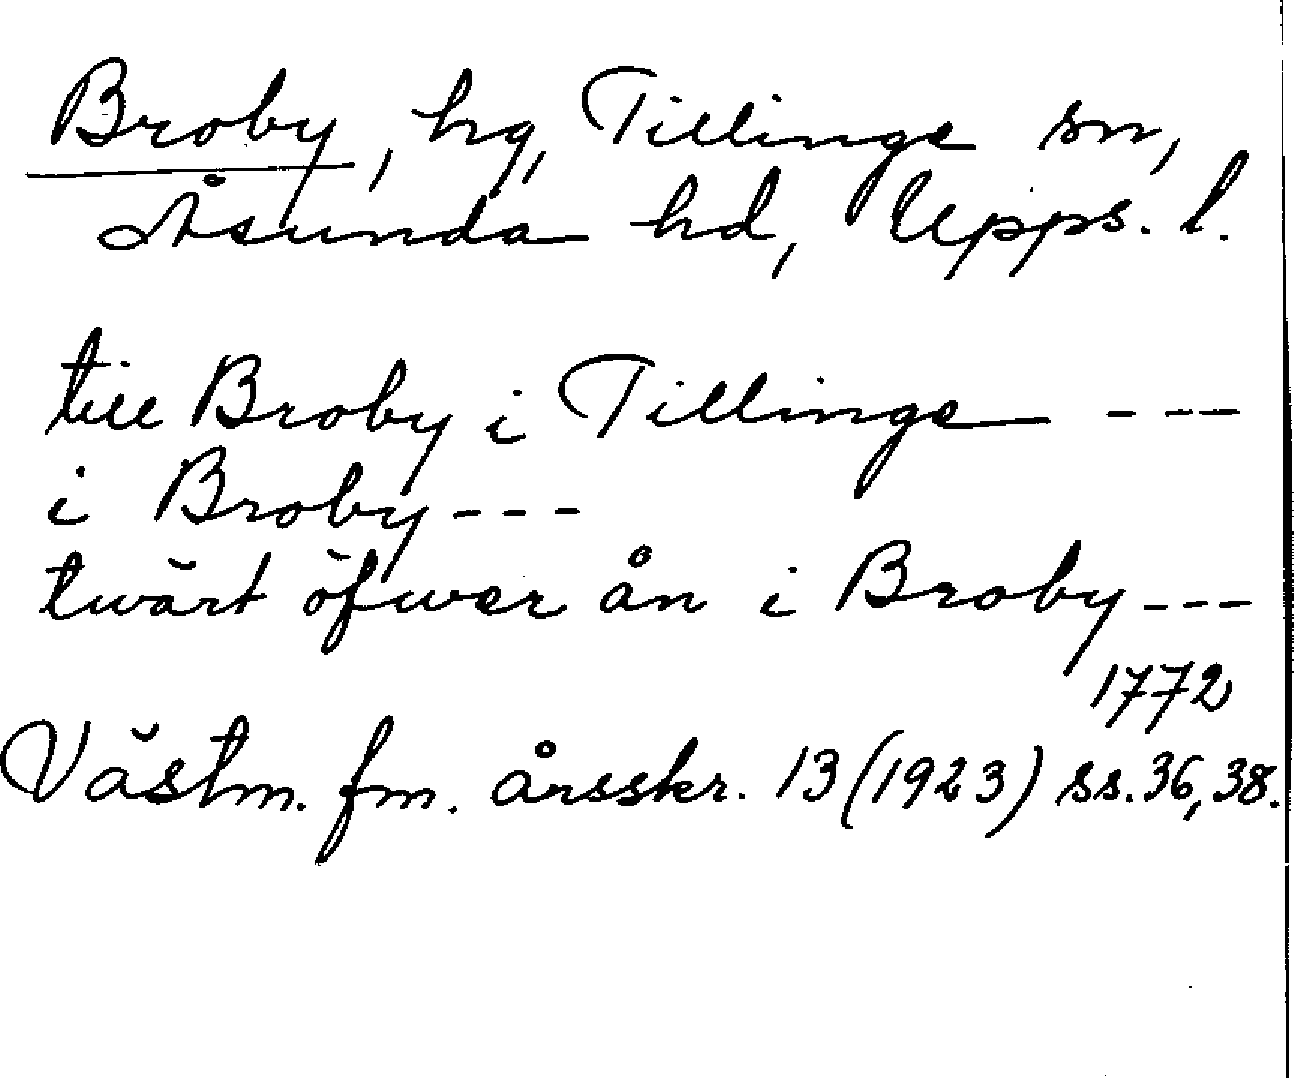 Broby, hg, Tillinge sn,
Åsunda hd, Upps. l.
till Broby i Tillinge - - -
i Broby - - -
twärt öfwer ån i Broby - - -
1772
Västm. fm. årsskr. 13 (1923) ss. 36, 38.